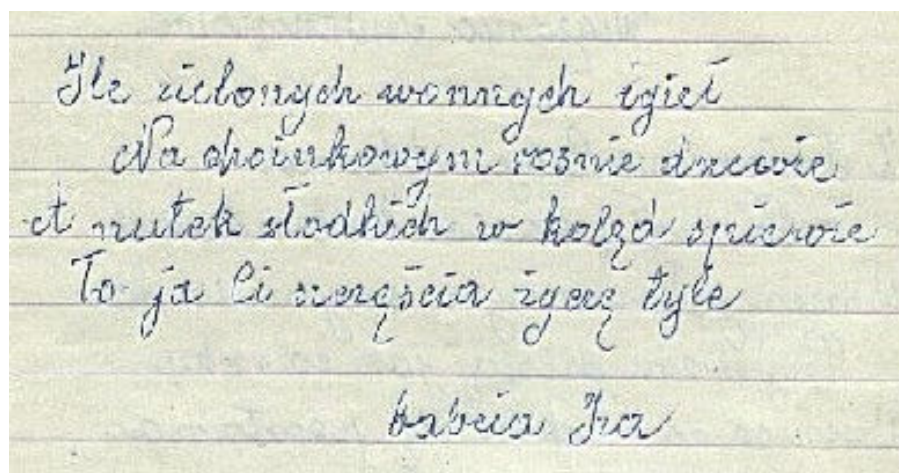 Ile zielonych wonnych igieł
Na choinkowym rośnie drzewie
A nutek słodkich w kolęd śpiewie
To ja Ci szczęścia życzę tyle
babcia Iza